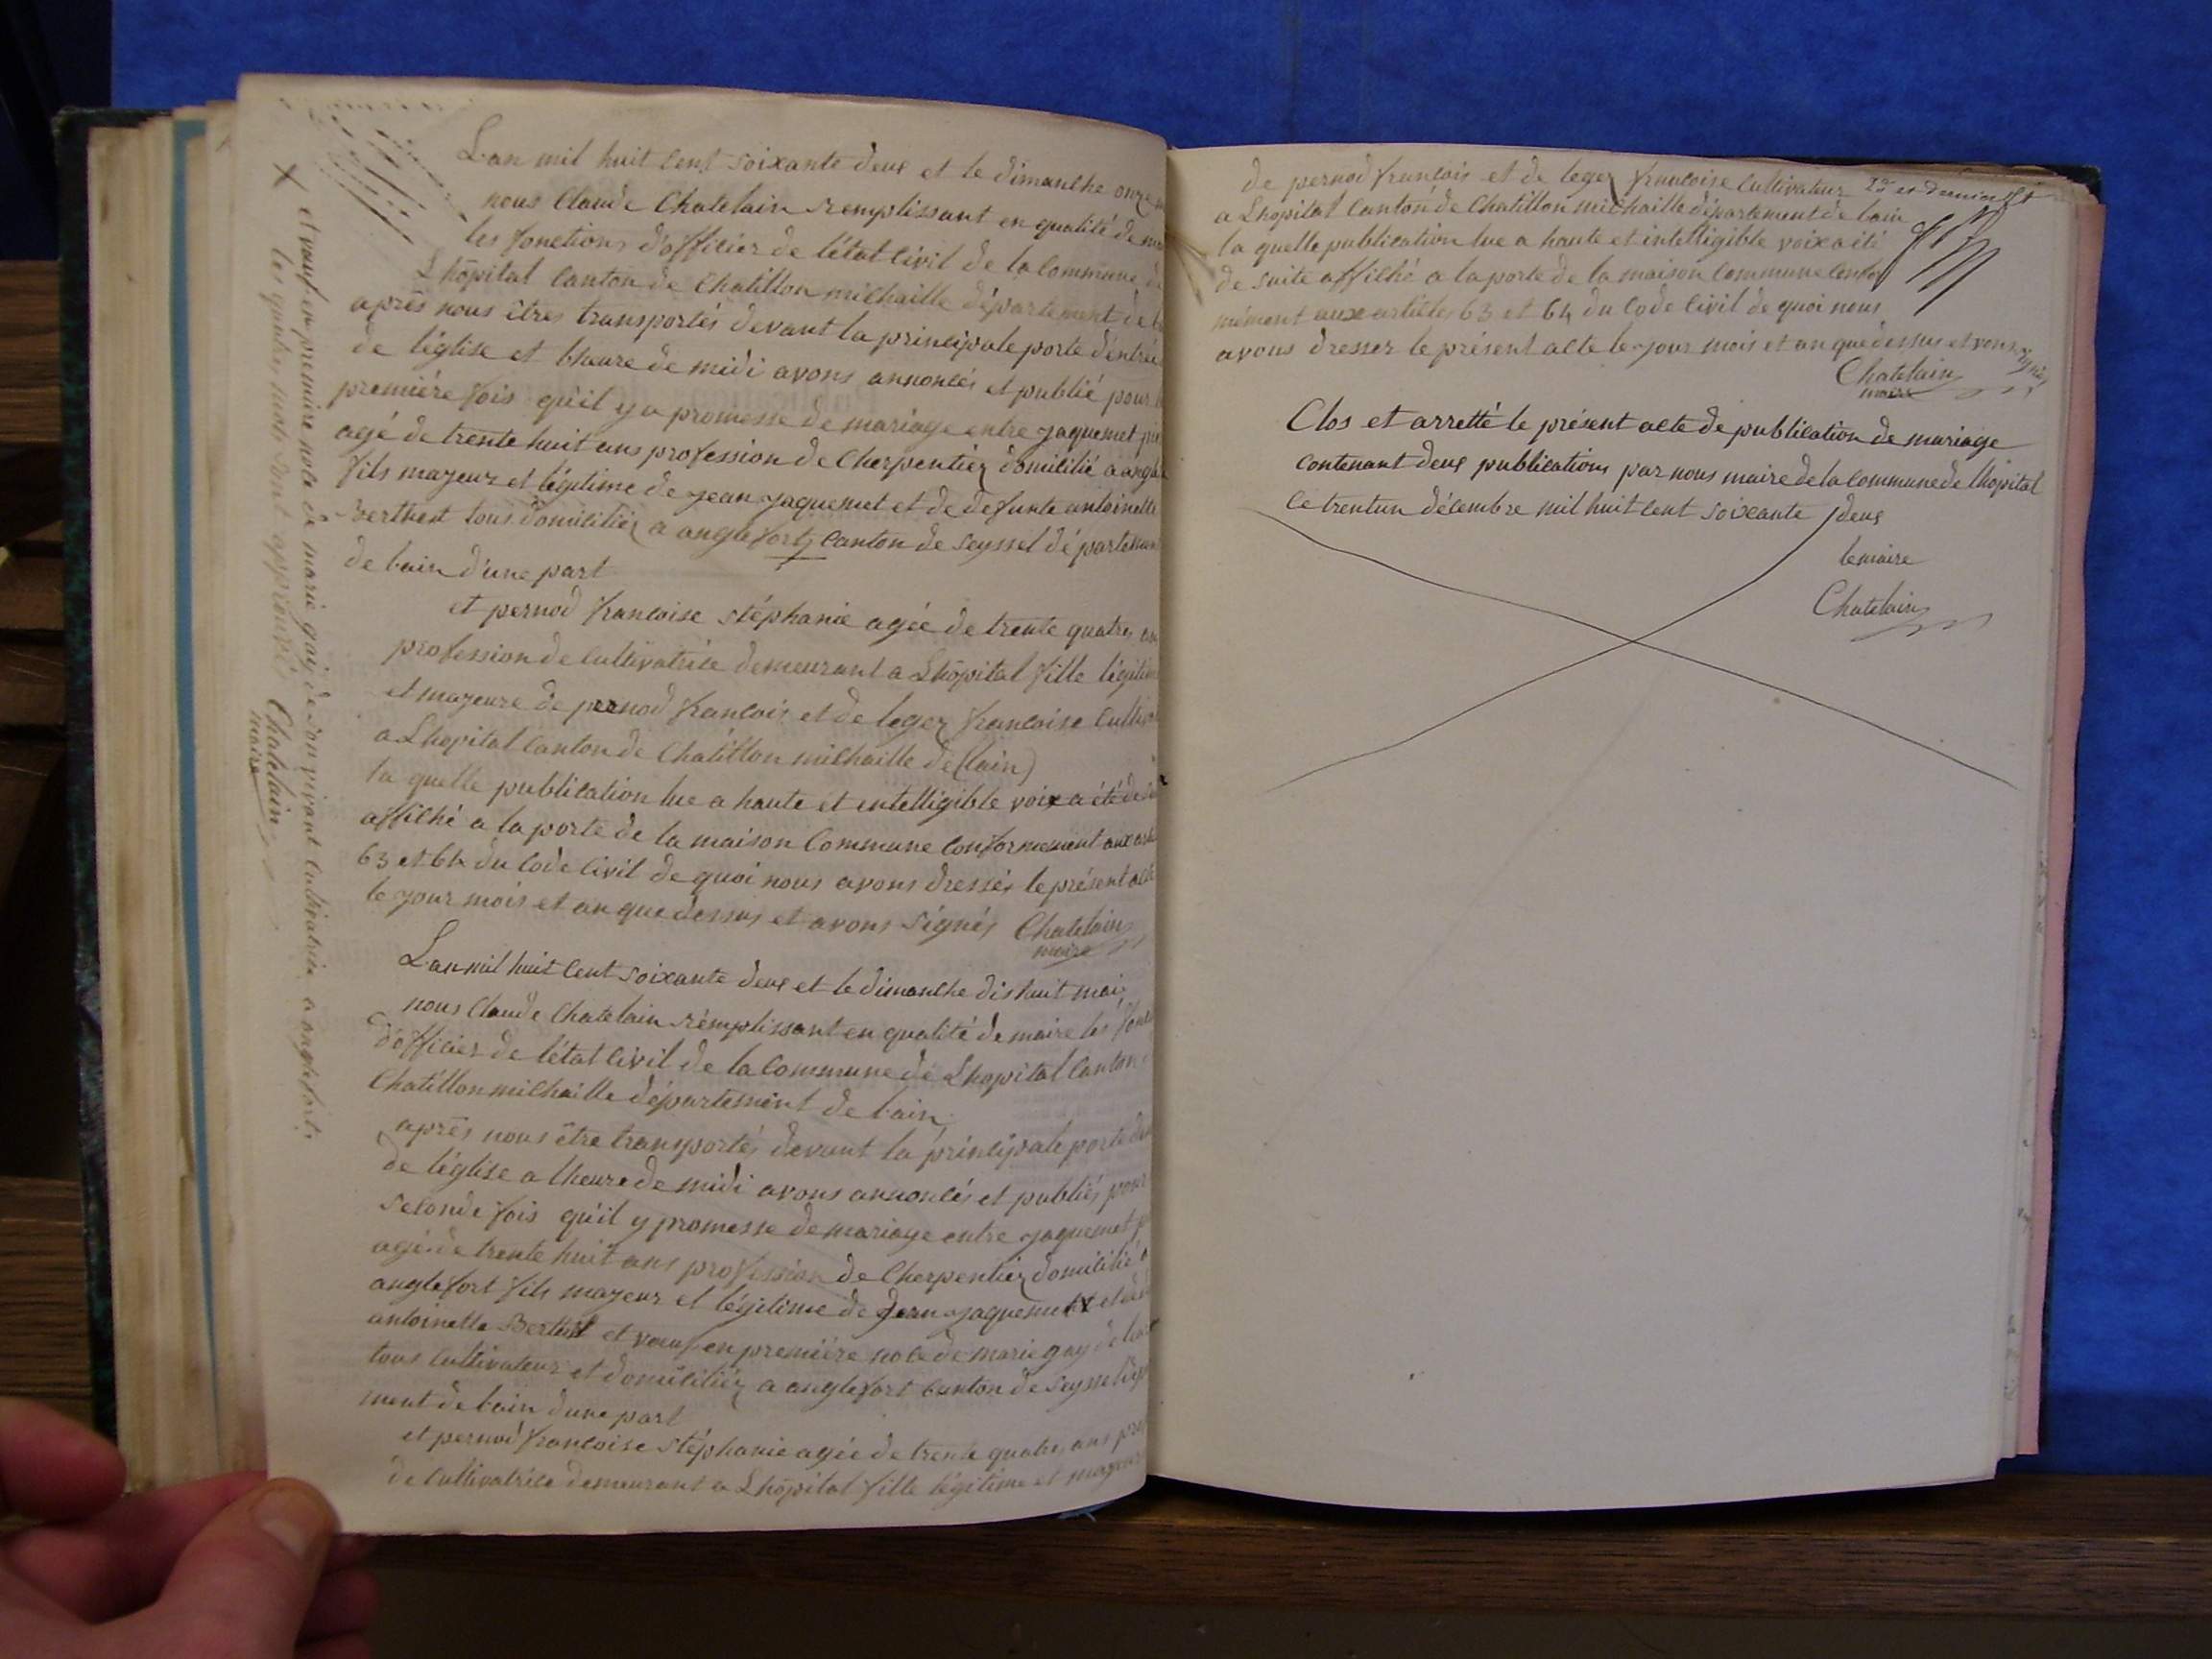 L'an mil huit cent soixante deux et le dimanche onze
nous Claude Chatelain remplissant en qualité de
les fonctions d'officier de l'état civil de la commune de
Lhôpital canton de Chatillon michaille département de
après nous êtres transportés devant la principale porte d'entrée
de l'église et lheure de midi avons annoncés et publié pour
première fois qu'il y a promesse de mariage entre jaquemet
agé de trente huit ans profession de Cherpentier domicilié a
fils majeur et légitime de jean jaquemet et de defunte antoinette
Berthet tous domiciliez a anglefort canton de seyssel département
de lain d'une part
et pernod francoise stéphanie agée de trente quatres
profession de cultivatrice demeurant a Lhôpital fille légitime
et majeure de pernod francois et de leger francoise
a Lhopital canton de Chatillon michaille de (lain)
la quelle publication lue a haute et intelligible voix a été de
affiché a la porte de la maison commune conformement aux
63 et 64 du code civil de quoi nous avons dressés le présent acte
le jour mois et an que dessus et avons signés Chatelain
maire
L'an mil huit cent soixante deux et le dimanche dishuit mai
nous Claude Chatelain remplissant en qualité de maire les
d'officier de l'état civil de la commune de Lhopital canton
Chatillon michaille département de lain
après nous être transportés devant la principale porte
de l'église a lheure de midi avons annoncés et publiés pour
seconde fois qu'il y promesse de mariage entre jaquemet
agé de trente huit ans profession de Cherpentier domicilié a
anglefort fils majeur et légitime de Jean jaquemet et de
antoinette Berthet et veuf en première noce de marie gay
tous cultivateur et domiciliéz a anglefort canton de seyssel
ment de lain d'une part
et pernod francoise stéphanie agée de trente quatre ans
de cultivatrice demeurant a Lhôpital fille légitime et majeure
X et veuf en première noce de marie gay de son vivant cultivatrice a anglefort
les quatres mots sont approuvé Chatelain
maire
de pernod francois et de leger francoise cultivateur
a Lhopital canton de Chatillon michaille département de lain
la quelle publication lue a haute et intelligible voix a été
de suite affiché a la porte de la maison commune confor
mément aux articles 63 et 64 du code civil de quoi nous
avons dresser le présent acte le jour mois et an que dessus et vons signés
Chatelain
maire
Clos et arretté le présent acte de publication de mariage
contenant deux publications par nous maire de la commune de lhopital
ce trentun décembre mil huit cent soixante deux
le maire
Chatelain